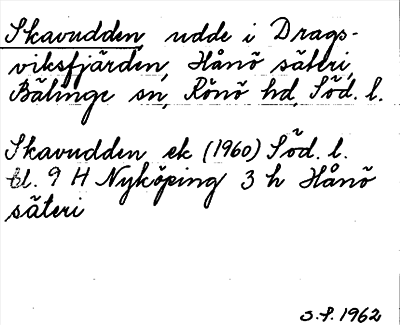 Skavudden, udde i Drags-
viksfjärden, Hånö säteri,
Bälinge sn, Rönö hd, Söd. l.
Skavudden ek (1960) Söd. l.
bl. 9 H Nyköping 3 h Hånö
säteri
S.f. 1962